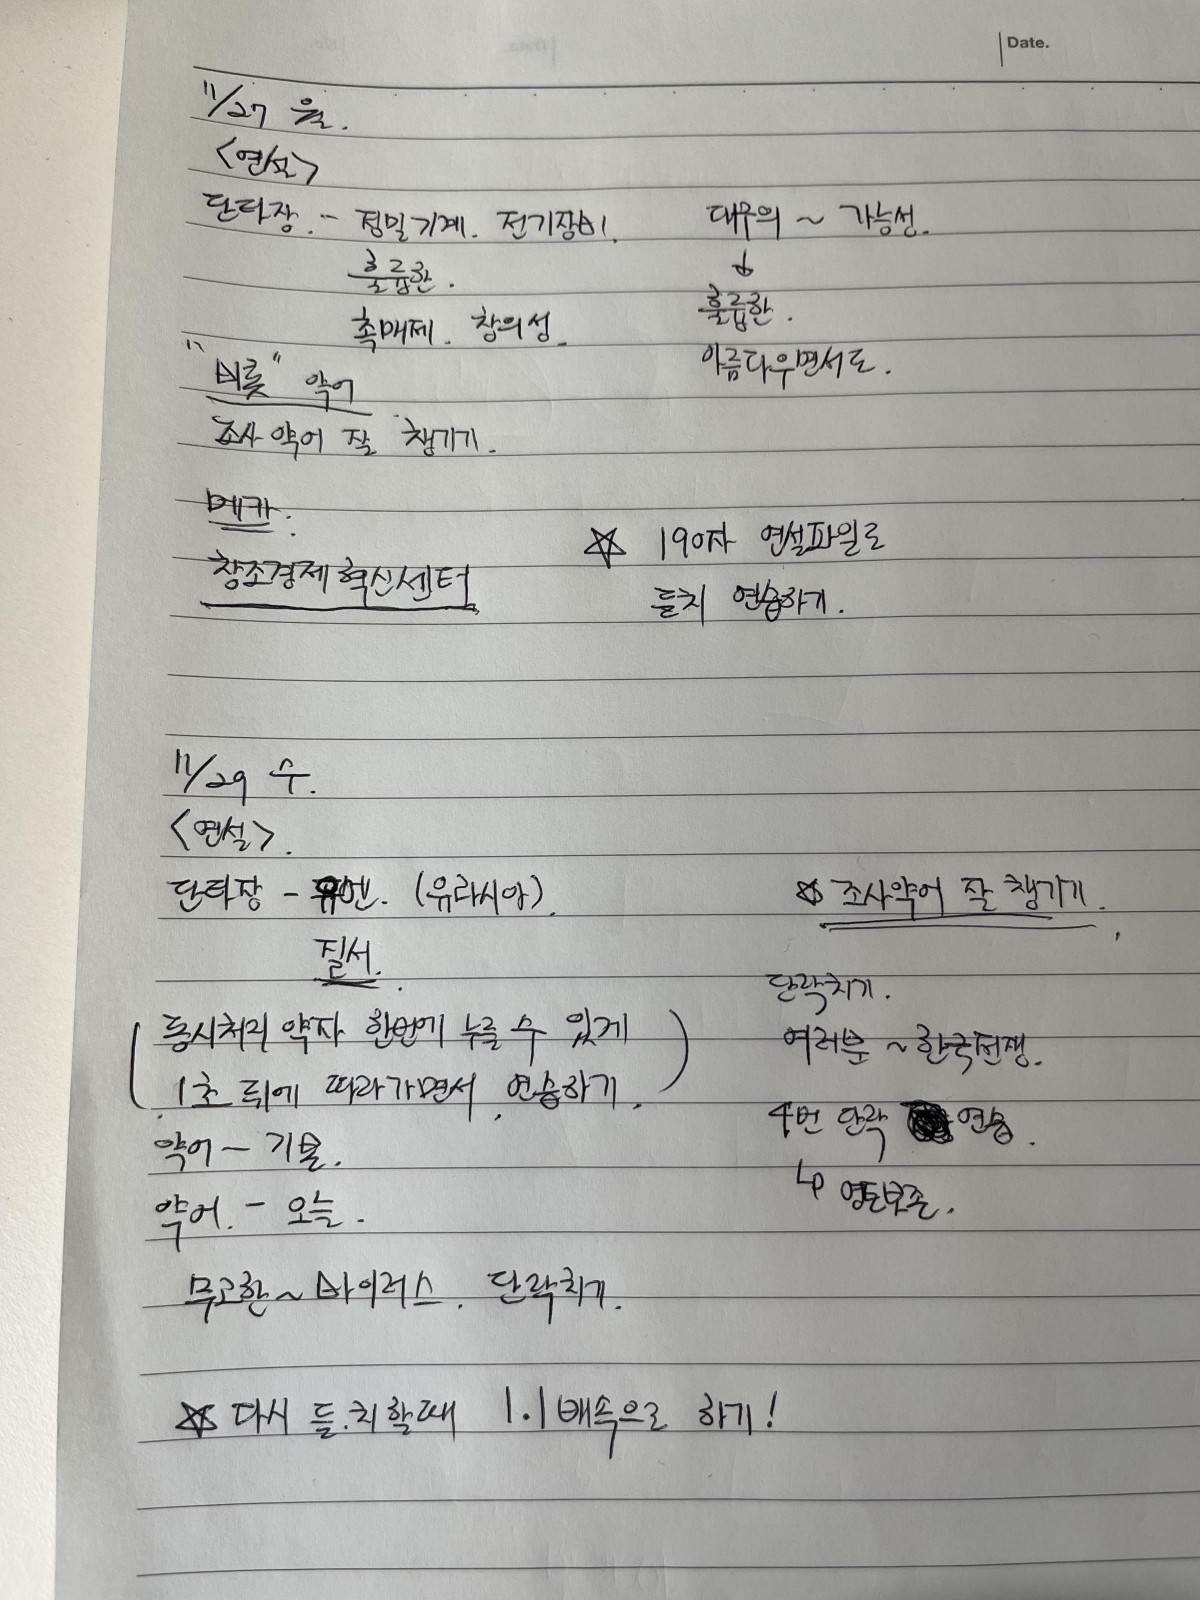 Date.
11/27 월.
<연설>
단타장. - 정밀기계. 전기장비. 대구의 ~ 가능성.
훌륭한. ↓
훌륭한.
촉매제. 창의성.
아름다우면서도.
"비롯" 약어
조사 약어 잘 챙기기.
메카.
☆ 190자 연설파일로
창조경제혁신센터
듣치 연습하기.
11/29 수.
<연설>.
단타장 - 유엔. (유라시아). ☆ 조사약어 잘 챙기기.
질서.
단락치기.
(동시처리 약자 한번에 누를 수 있게
여러분 ~ 한국전쟁.
1초 뒤에 따라가면서 연습하기.)
4번 단락 연습.
약어 - 기술.
↳ 영탄보존.
약어. - 오늘.
무고한 ~ 바이러스. 단락치기.
☆ 다시 듣.치 할때 1.1배속으로 하기!